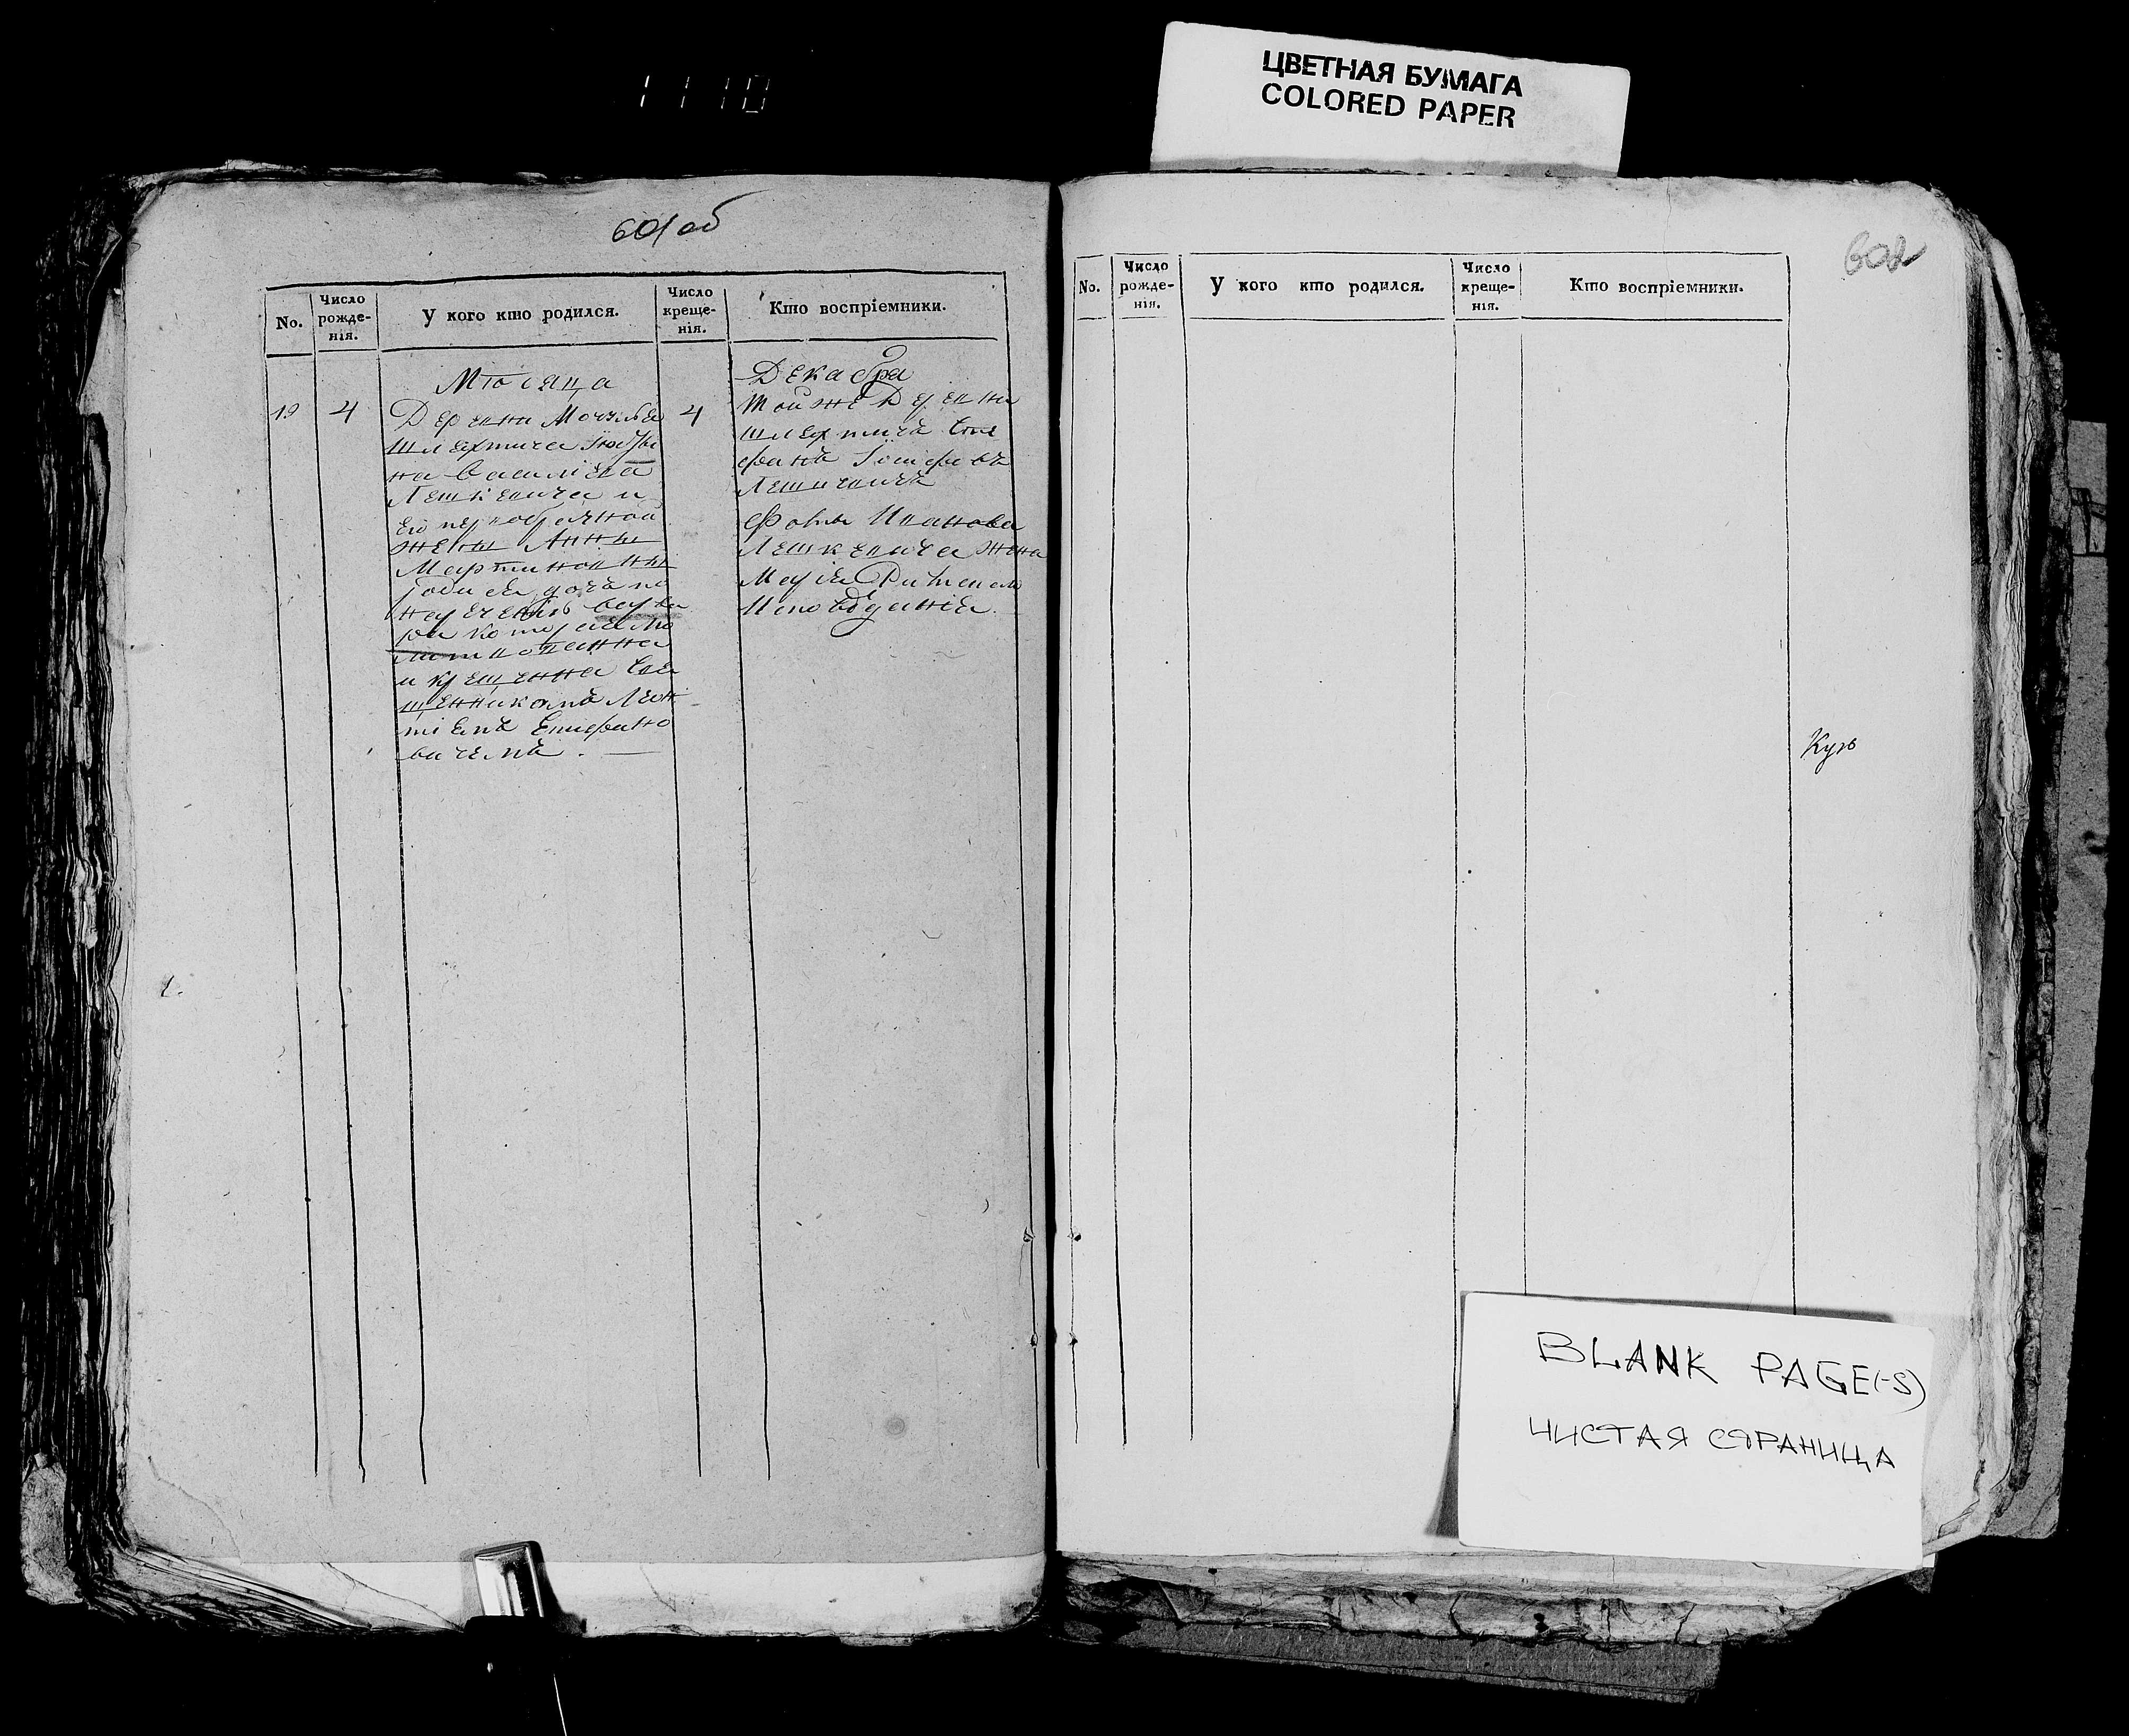 1110
ЦВЕТНАЯ БУМАГА
COLORED PAPER
601 об
No.
Число рожде-нія.
У кого кто родился.
Число креще-нія.
Кто воспріемники.
Мѣсяца
Декабря
19 4
Деревни
Шляхтича
на Василіева
Лешкевича и
его первобрачной
жены Анны
Мартиновны
дочь по
наречению Варва
ра которая мо
литвованна
и крещенна Свя
щенникомъ Леон
тіемъ Епифано
вичемъ.
4
той же Деревни
шляхтичъ Сте
фанъ Іосифовъ
Ивано­ва
Лешкевича жена
Марія
602
No.
Число рожде-нія.
У кого кто родился.
Число креще-нія.
Кто воспріемники.
BLANK PAGE(-S)
ЧИСТАЯ СТРАНИЦА